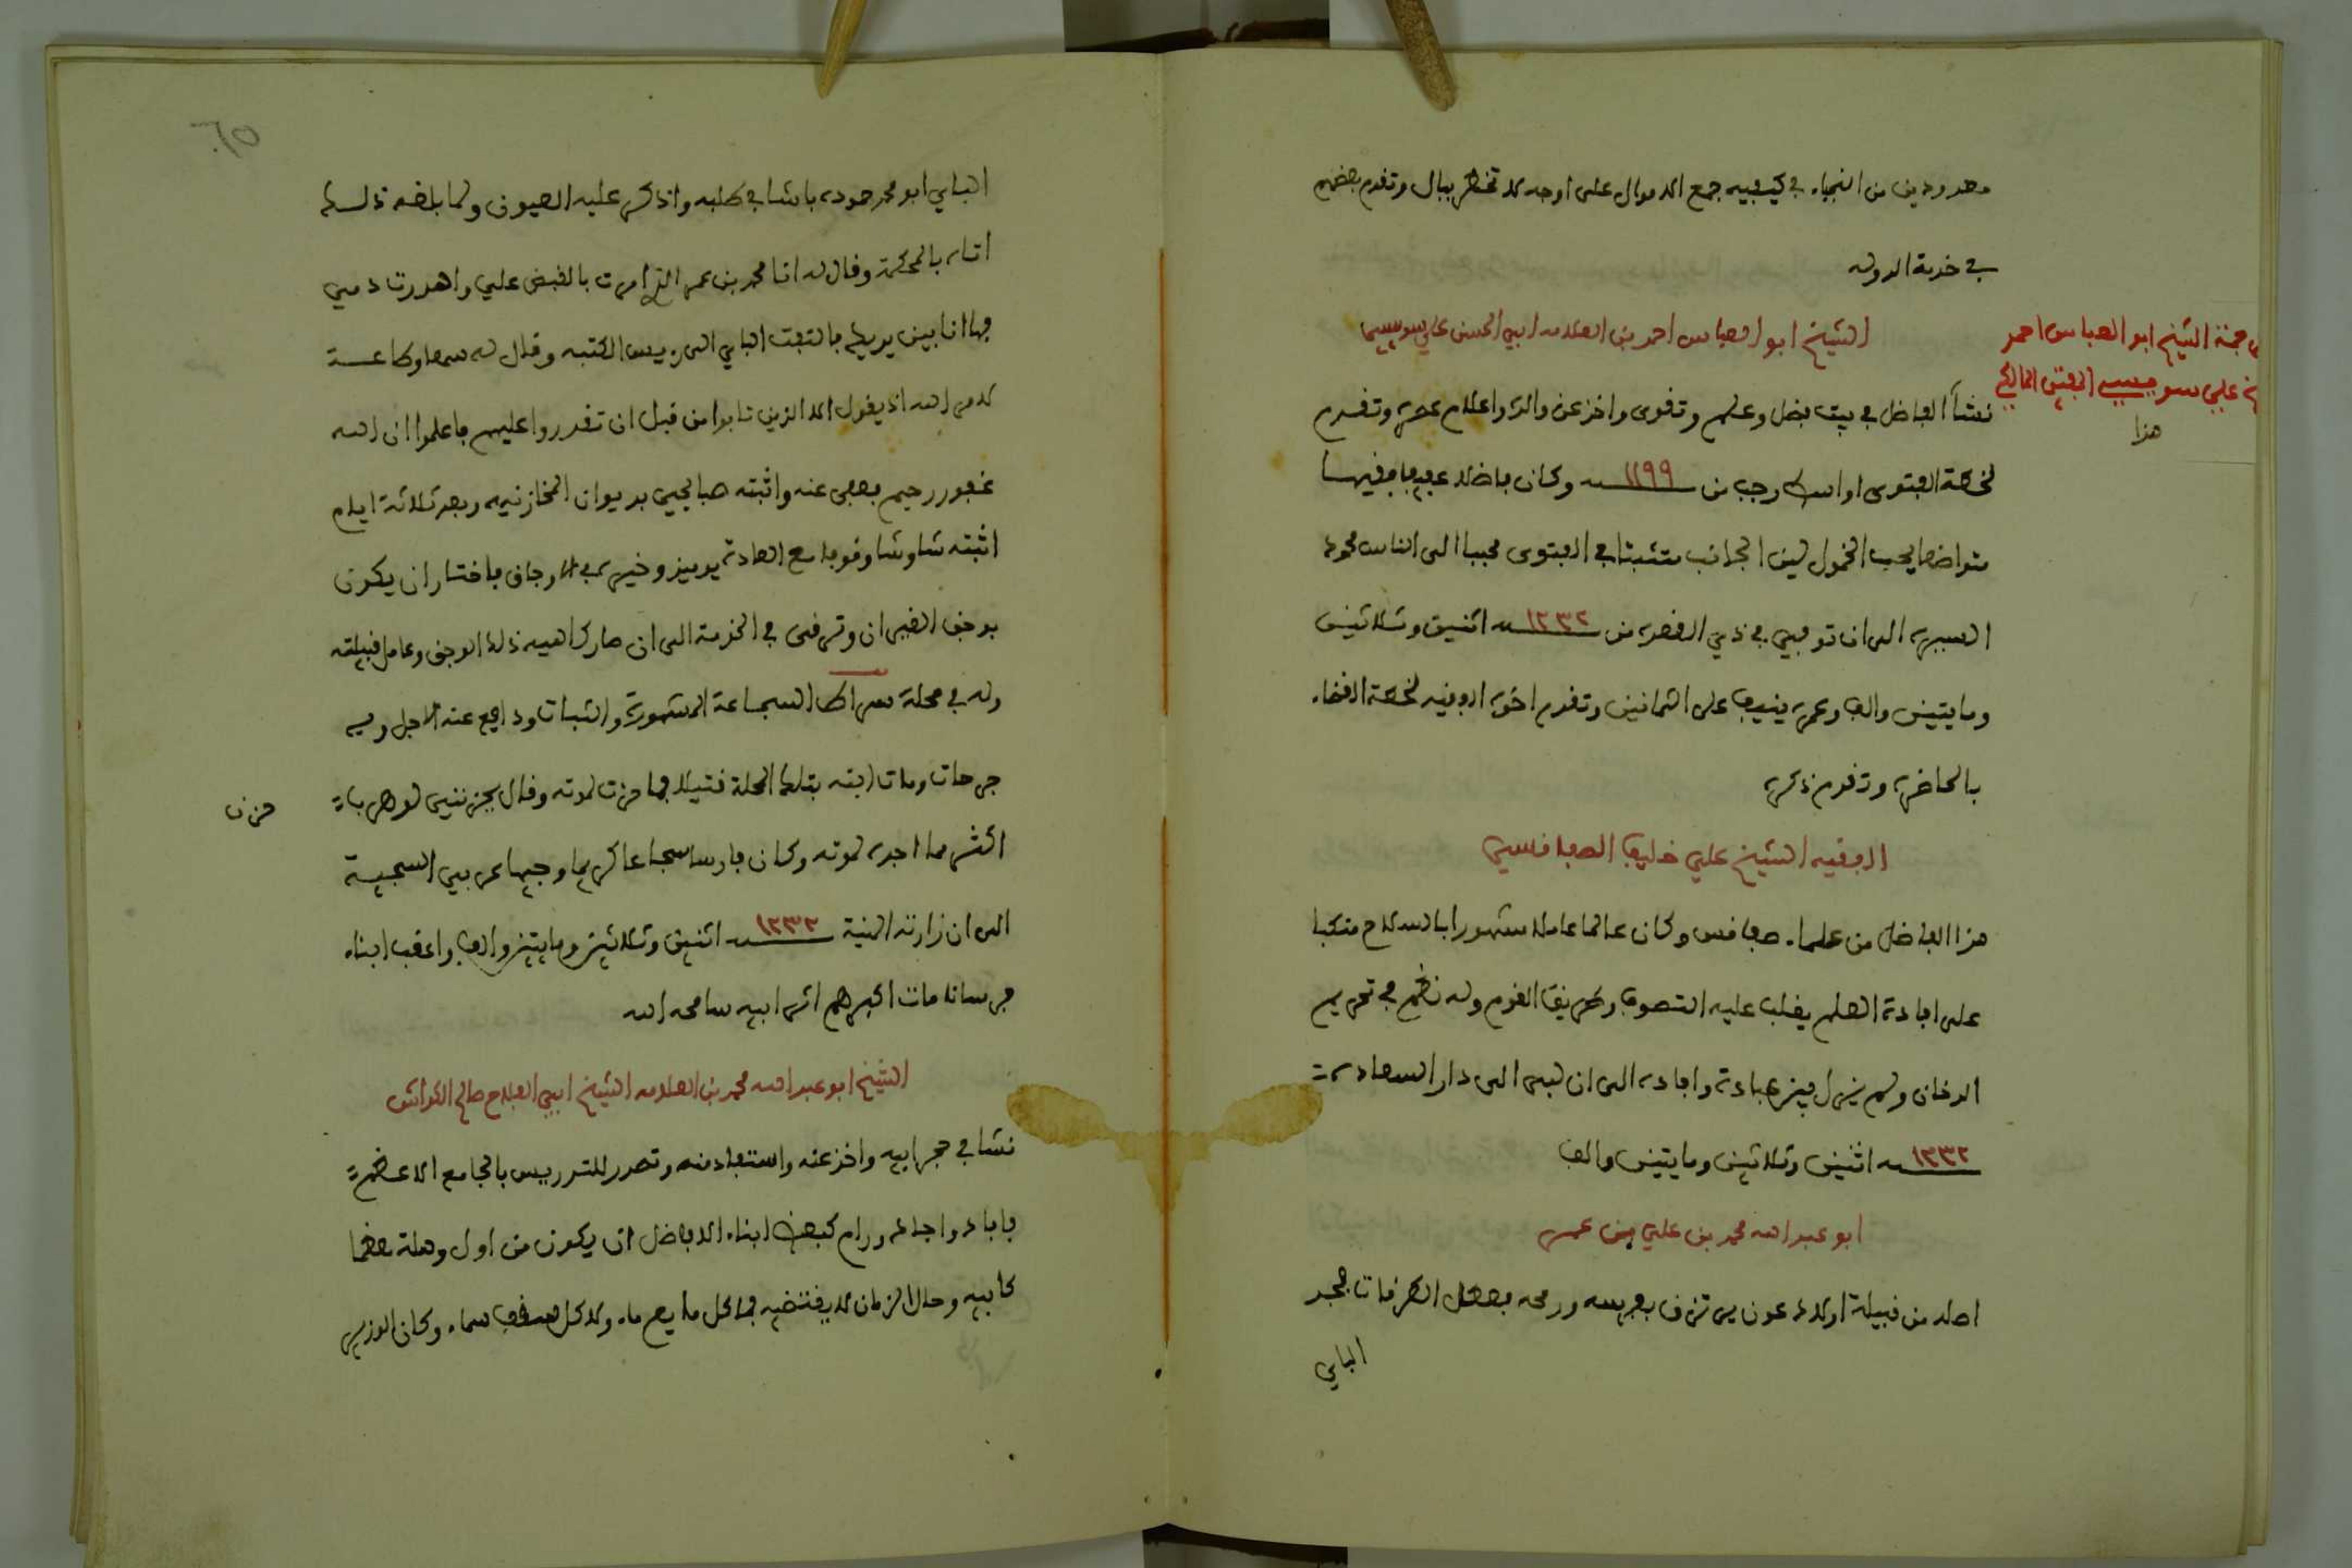 معدودين من النجباء في كيفية جمع الاموال على اوجه لا تخطر ببال وتقدم بعضهم
في خدمة الدوله
الشيخ ابو العباس احمد بن العلامه ابي الحسن علي سويسي
ترجمة الشيخ ابو العباس احمد
علي سويسي المفتي المالكي
هذا
نشأ الفاضل في بيت فضل وعلم وتقوى واخذ عن والده واعلام عصره وتقدم
لخطة الفتوى اواسط رجب من ١١٩٩ سنه وكان فاضلا عفيفا فقيها
متواضعا يحب الخمول لين الجانب متثبتا في الفتوى محببا الى الناس محمود
السيره الى ان توفي في ذي القعده من ١٢٣٢ سنه اثنين وثلاثين
ومايتين والف وعمره ينيف على الثمانين وتقدم اخوه لخطة القضاء
بالحاضره وتقدم ذكره
الفقيه الشيخ علي خليف الصفاقسي
هذا الفاضل من علماء صفاقس وكان عالما عاملا مشهورا بالصلاح منكبا
على افادة العلم يغلب عليه التصوف وطريق القوم وله نظم في تحريم
الدخان ولم يزل بين عبادة وافاده الى ان لبى الى دار السعادة
١٢٣٢ سنه اثنين وثلاثين ومايتين والف
ابو عبد الله محمد بن علي بن عمر
اصله من قبيلة اولاد عون يرتزق بفرسه ورمحه فعطل الطرقات فجد
الباي
٦٥
الباي ابو محمد حموده باشا في طلبه واذكى عليه العيون ولما بلغه ذلك
اتاه بالمحكمة وقال له انا محمد بن عمر الذي امرت بالقبض علي واهدرت دمي
فها انا بين يديك فالتفت الباي الى رييس الكتبه وقال له سمعا وطاعة
لامر الله اذ يقول الا الذين تابوا من قبل ان تقدروا عليهم فاعلموا ان الله
غفور رحيم فعفى عنه واثبته صبايحي بديوان المخازنيه وبعد ثلاثة ايام
اثبته شاوشا وقوفا مع العادة يوميذ وخيره في الاوجاق فاختار ان يكون
بوجق القيروان وترقى في الخدمة الى ان صار كاهية ذلك الوجق وعامل قبيلته
وله في محلة سراط الشجاعة المشهورة والثبات ودافع عنه الاجل وبه
جرحات ومات ابنه بتلك المحلة قتيلا فما حزن لموته وقال يحزنني لو هربا
حزن
اكثر مما اجده لموته وكان فارسا شجاعا كريما وجيها عربي السجية
الى ان زارته المنية ١٢٣٢ سنه اثنين وثلاثين ومايتين والف واعقب ابناء
فرسانا مات اكبرهم اثر ابيه سامحه الله
الشيخ ابو عبد الله محمد بن العلامه الشيخ ابي الفلاح صالح الكواش
نشا في حجر ابيه واخذ عنه واستفاد منه وتصدر للتدريس بالجامع الاعظم
فافاد واجاد ورام كبعض ابناء الافاضل ان يكون من اول وهلة معظما
كابيه وحال الزمان لا يقتضيه فما كل مايع ماء ولا كل سقف سماء وكان الوزير